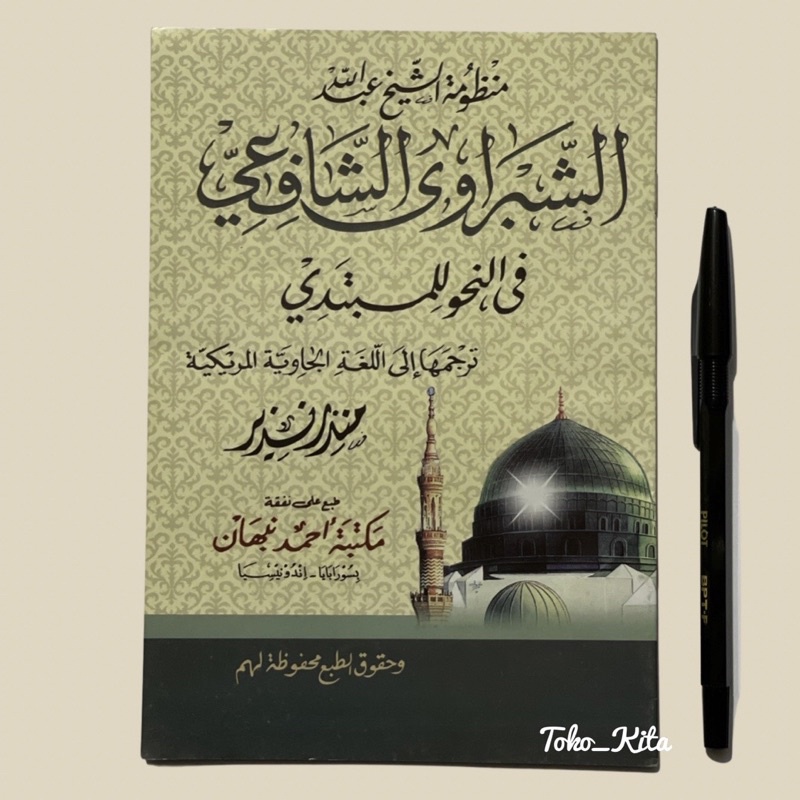 منْظُومَة الشّيخ عبد اللّه
الشَّبْرَاوِى الشَّافِعِيّ
فى النحو للمبتَدِي
ترجمَهَا إلىَ اللّغَةِ الجاويَّة المريكيّة
منذر نذير
طبع على نفقة
مَكتَبَة احمَد نبهَان
بسُورَابَايَا - اِنْدُونيْسِيَا
وحقوق الطبع محفوظة لهم
PILOT BPT-F
Toko_Kita